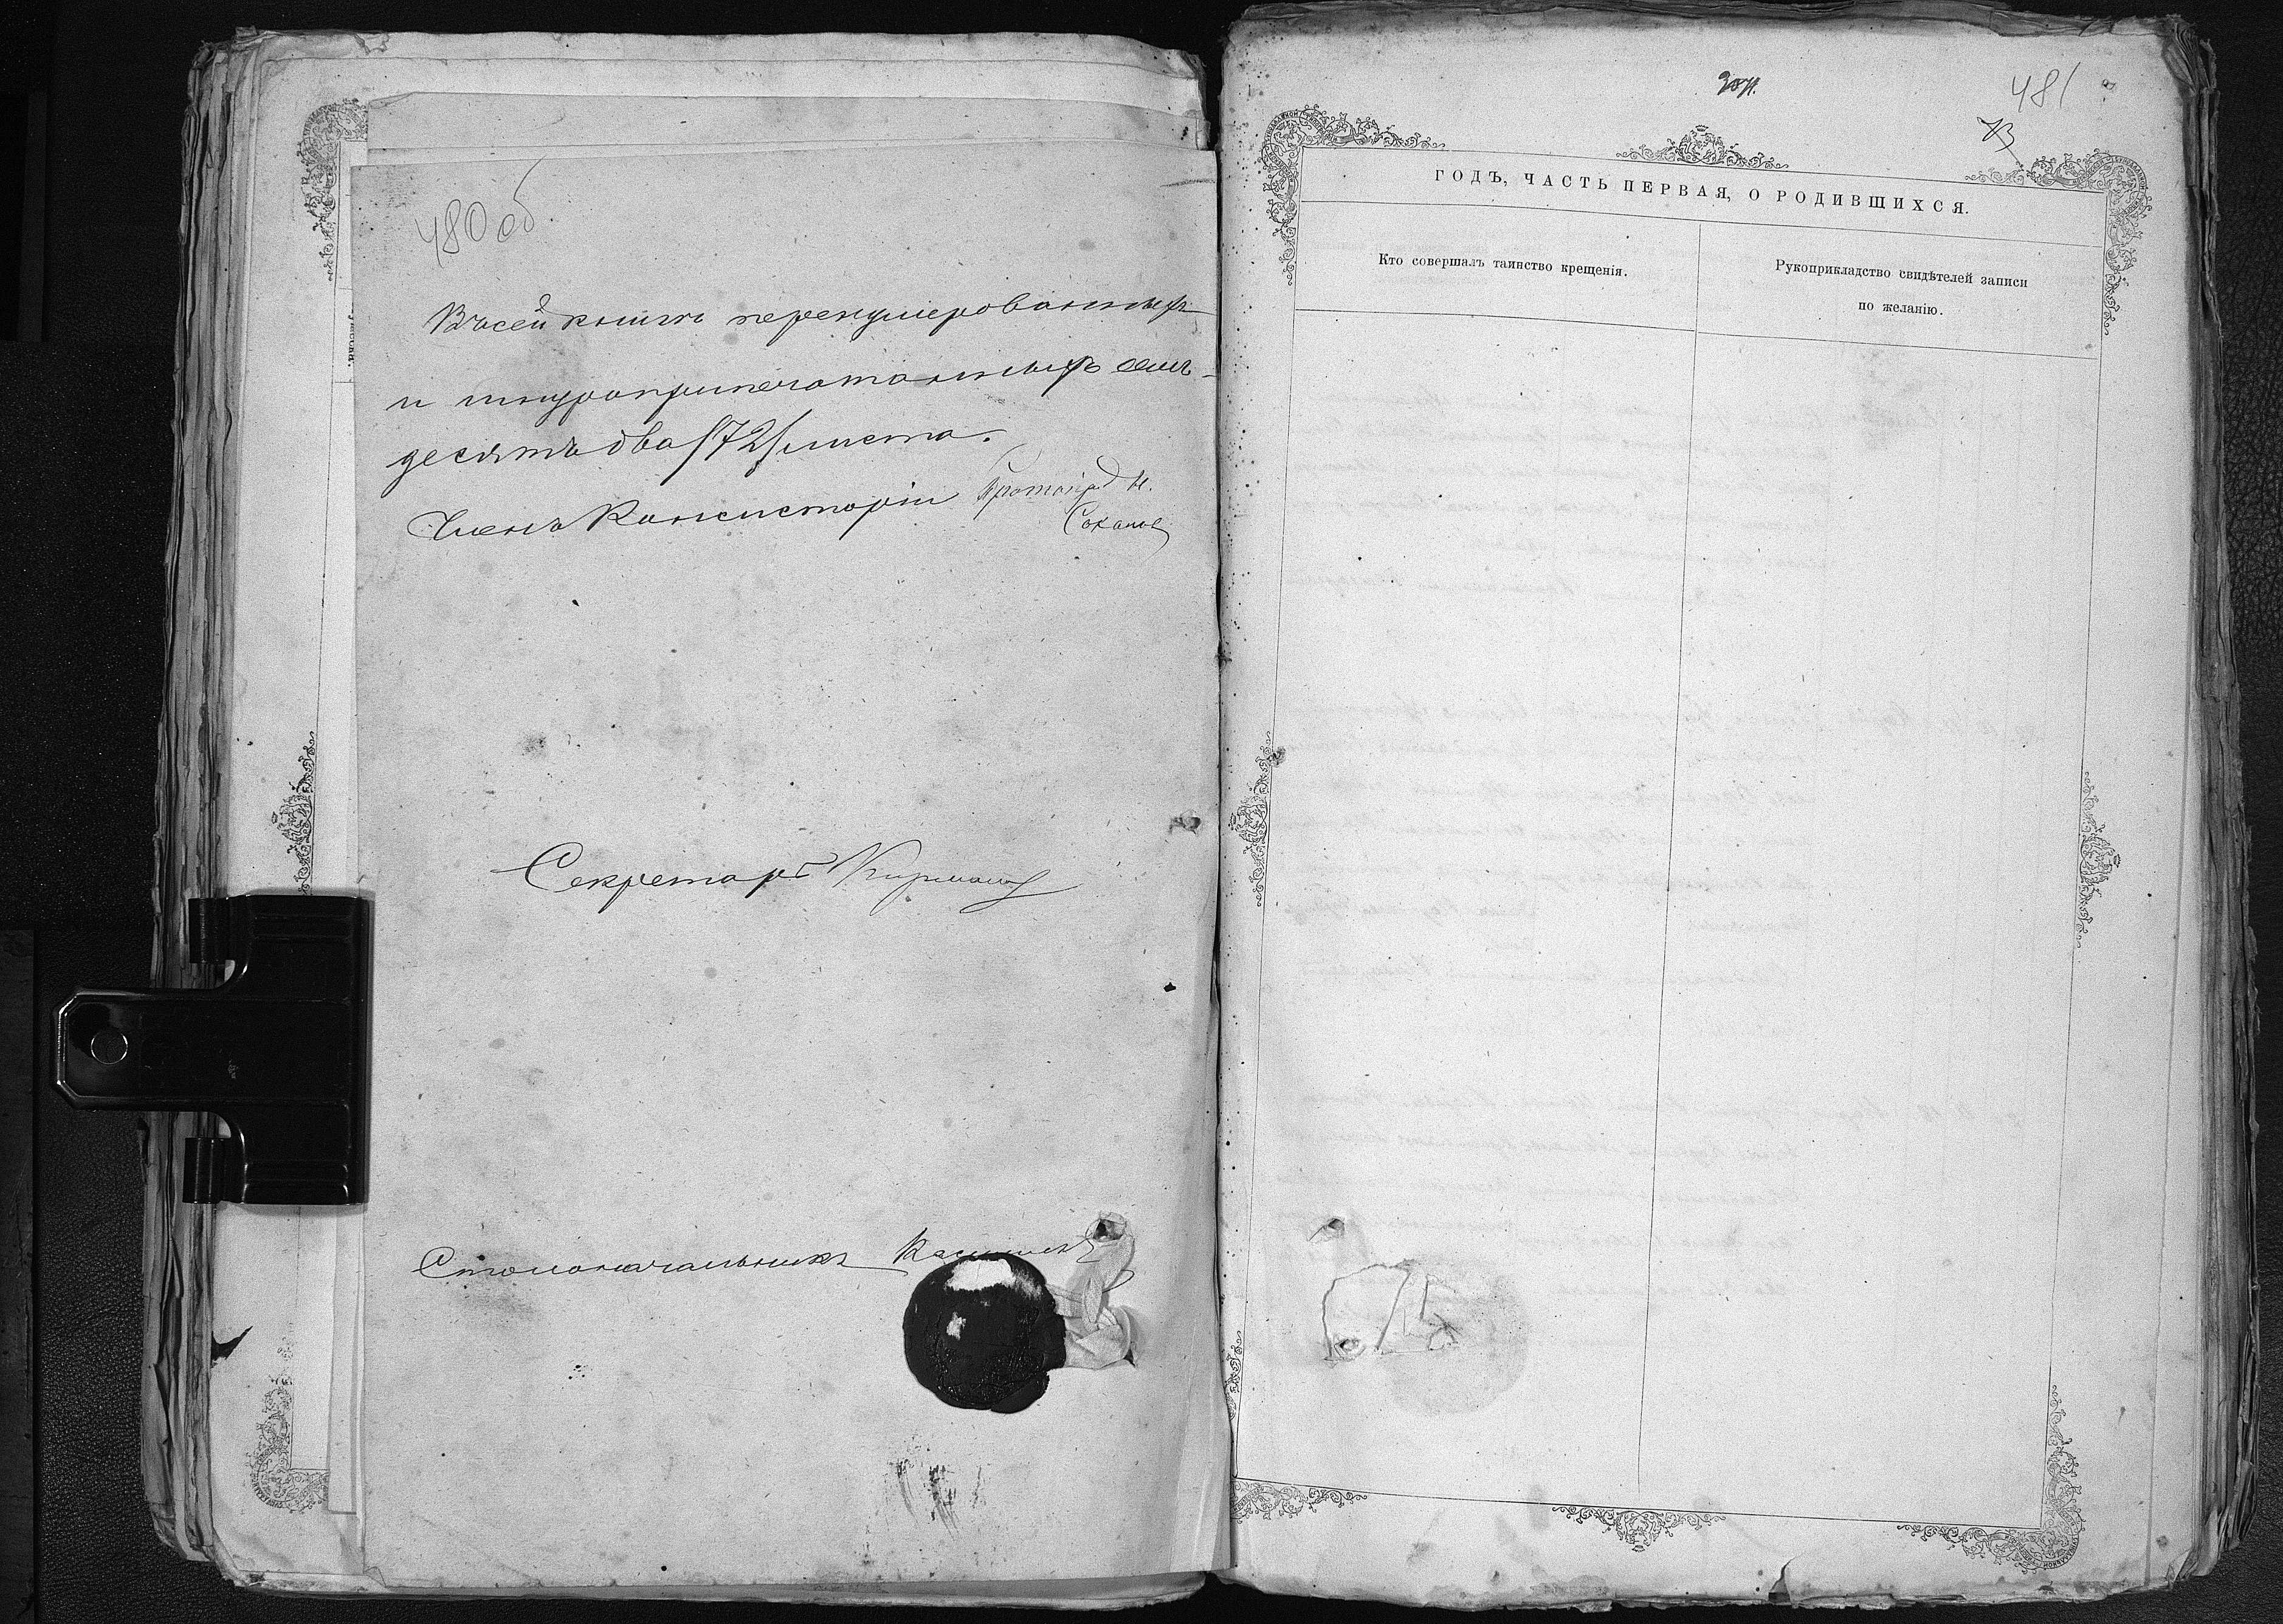 480 об
Въ сей книге перенумерованныхъ
и шнуроприпечатанныхъ семь-
десятъ два /72/ листа.
Членъ Консисторіи Протоіерей И.
Соколов
Секретарь
Столоначальникъ
481
ГОДЪ, ЧАСТЬ ПЕРВАЯ, О РОДИВШИХСЯ.
Кто совершалъ таинство крещенія.
Рукоприкладство свидѣтелей записи
по желанію.